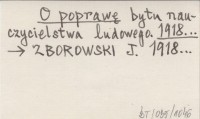 O poprawę bytu nau-
czycielstwa ludowego. 1918...
→ ZBOROWSKI J. 1918...